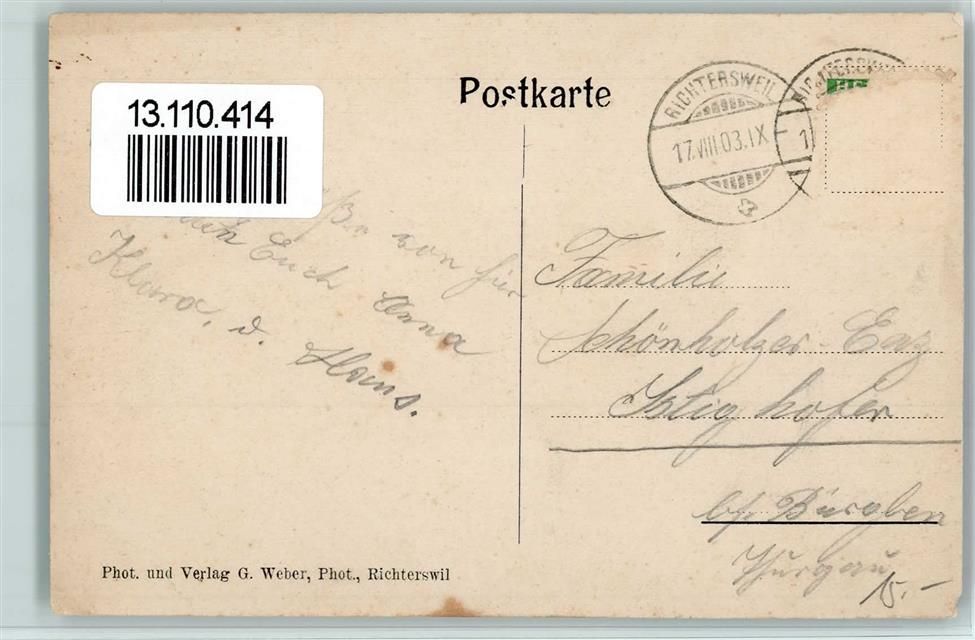 13.110.414
Postkarte
RICHTERSWEIL
17.VIII.03.IX
von hier
Euch Anna
Klara, u. Hans.
Familie
Schönholzer-Enz
hofer
b/ Bürglen
Thurgau
15.-
Phot. und Verlag G. Weber, Phot., Richterswil